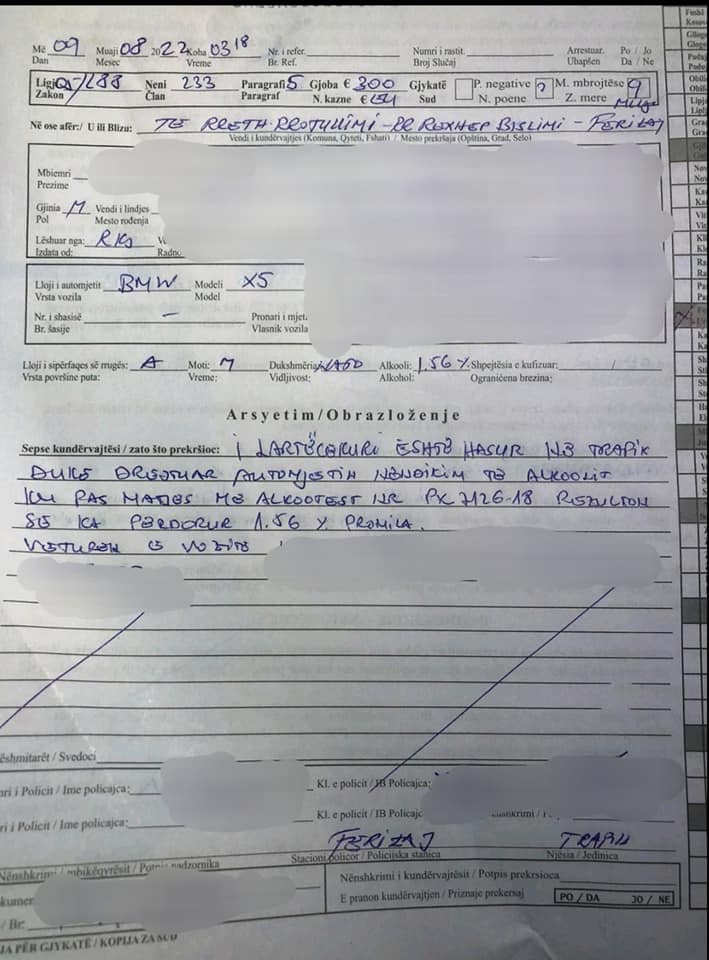 Më 09 Muaji 08 2022 Koha 03 18 Nr. i refer. Numri i rastit. Arrestuar. Po / Jo
Dan Mesec Vreme Br. Ref. Broj Slučaj Uhapšen Da / Ne
Ligji 05/L88 Neni 233 Paragrafi 5 Gjoba € 300 Gjykatë P. negative M. mbrojtëse 9
Zakon Član Paragraf N. kazne € Sud N. poene Z. mere Muaj
Në ose afër:/ U ili Blizu: TE RRETH RROTULLIMI - RR REXHEP BISLIMI - FERIZAJ
Vendi i kundërvajtjes (Komuna, Qyteti, Fshati) / Mesto prekršaja (Opština, Grad, Selo)
Mbiemri
Prezime
Gjinia M Vendi i lindjes
Pol Mesto rođenja
Lëshuar nga: RKS
Izdata od: Radno
Lloji i automjetit BMW Modeli X5
Vrsta vozila Model
Nr. i shasisë - Pronari i mjet
Br. šasije Vlasnik vozila
Lloji i sipërfaqes së rrugës: A Moti: M Dukshmëria: Alkooli: 1,56 % Shpejtësia e kufizuar: /
Vrsta površine puta: Vreme: Vidljivost: Alkohol: Ograničena brezina:
Arsyetim/Obrazloženje
Sepse kundërvajtësi / zato što prekršioc: I LARTËCEKURI ËSHTË HASUR NË TRAFIK
DUKE DREJTUAR AUTOMJETIN NËNDIKIM TË ALKOOLIT
KU PAS MATJES ME ALKOOTEST NR PK 7126-18 REZULTON
SE KA PËRDORUR 1.56 % PROMILA.
VETUREN E VOZITE
ëshmitarët / Svedoci
ri i Policit / Ime policajca: Kl. e policit / IB Policajca:
ri i Policit / Ime policajca: Kl. e policit / IB Policajc
FERIZAJ TRAFIK
Nënshkrimi i mbikëqyrësit / Potpis nadzornika Stacioni policor / Policijska stanica Njësia / Jedinica
Nënshkrimi i kundërvajtësit / Potpis prekrsioca
E pranon kundërvajtjen / Priznaje prekersaj PO / DA JO / NE
/ Br:
JA PËR GJYKATË / KOPIJA ZA SUD